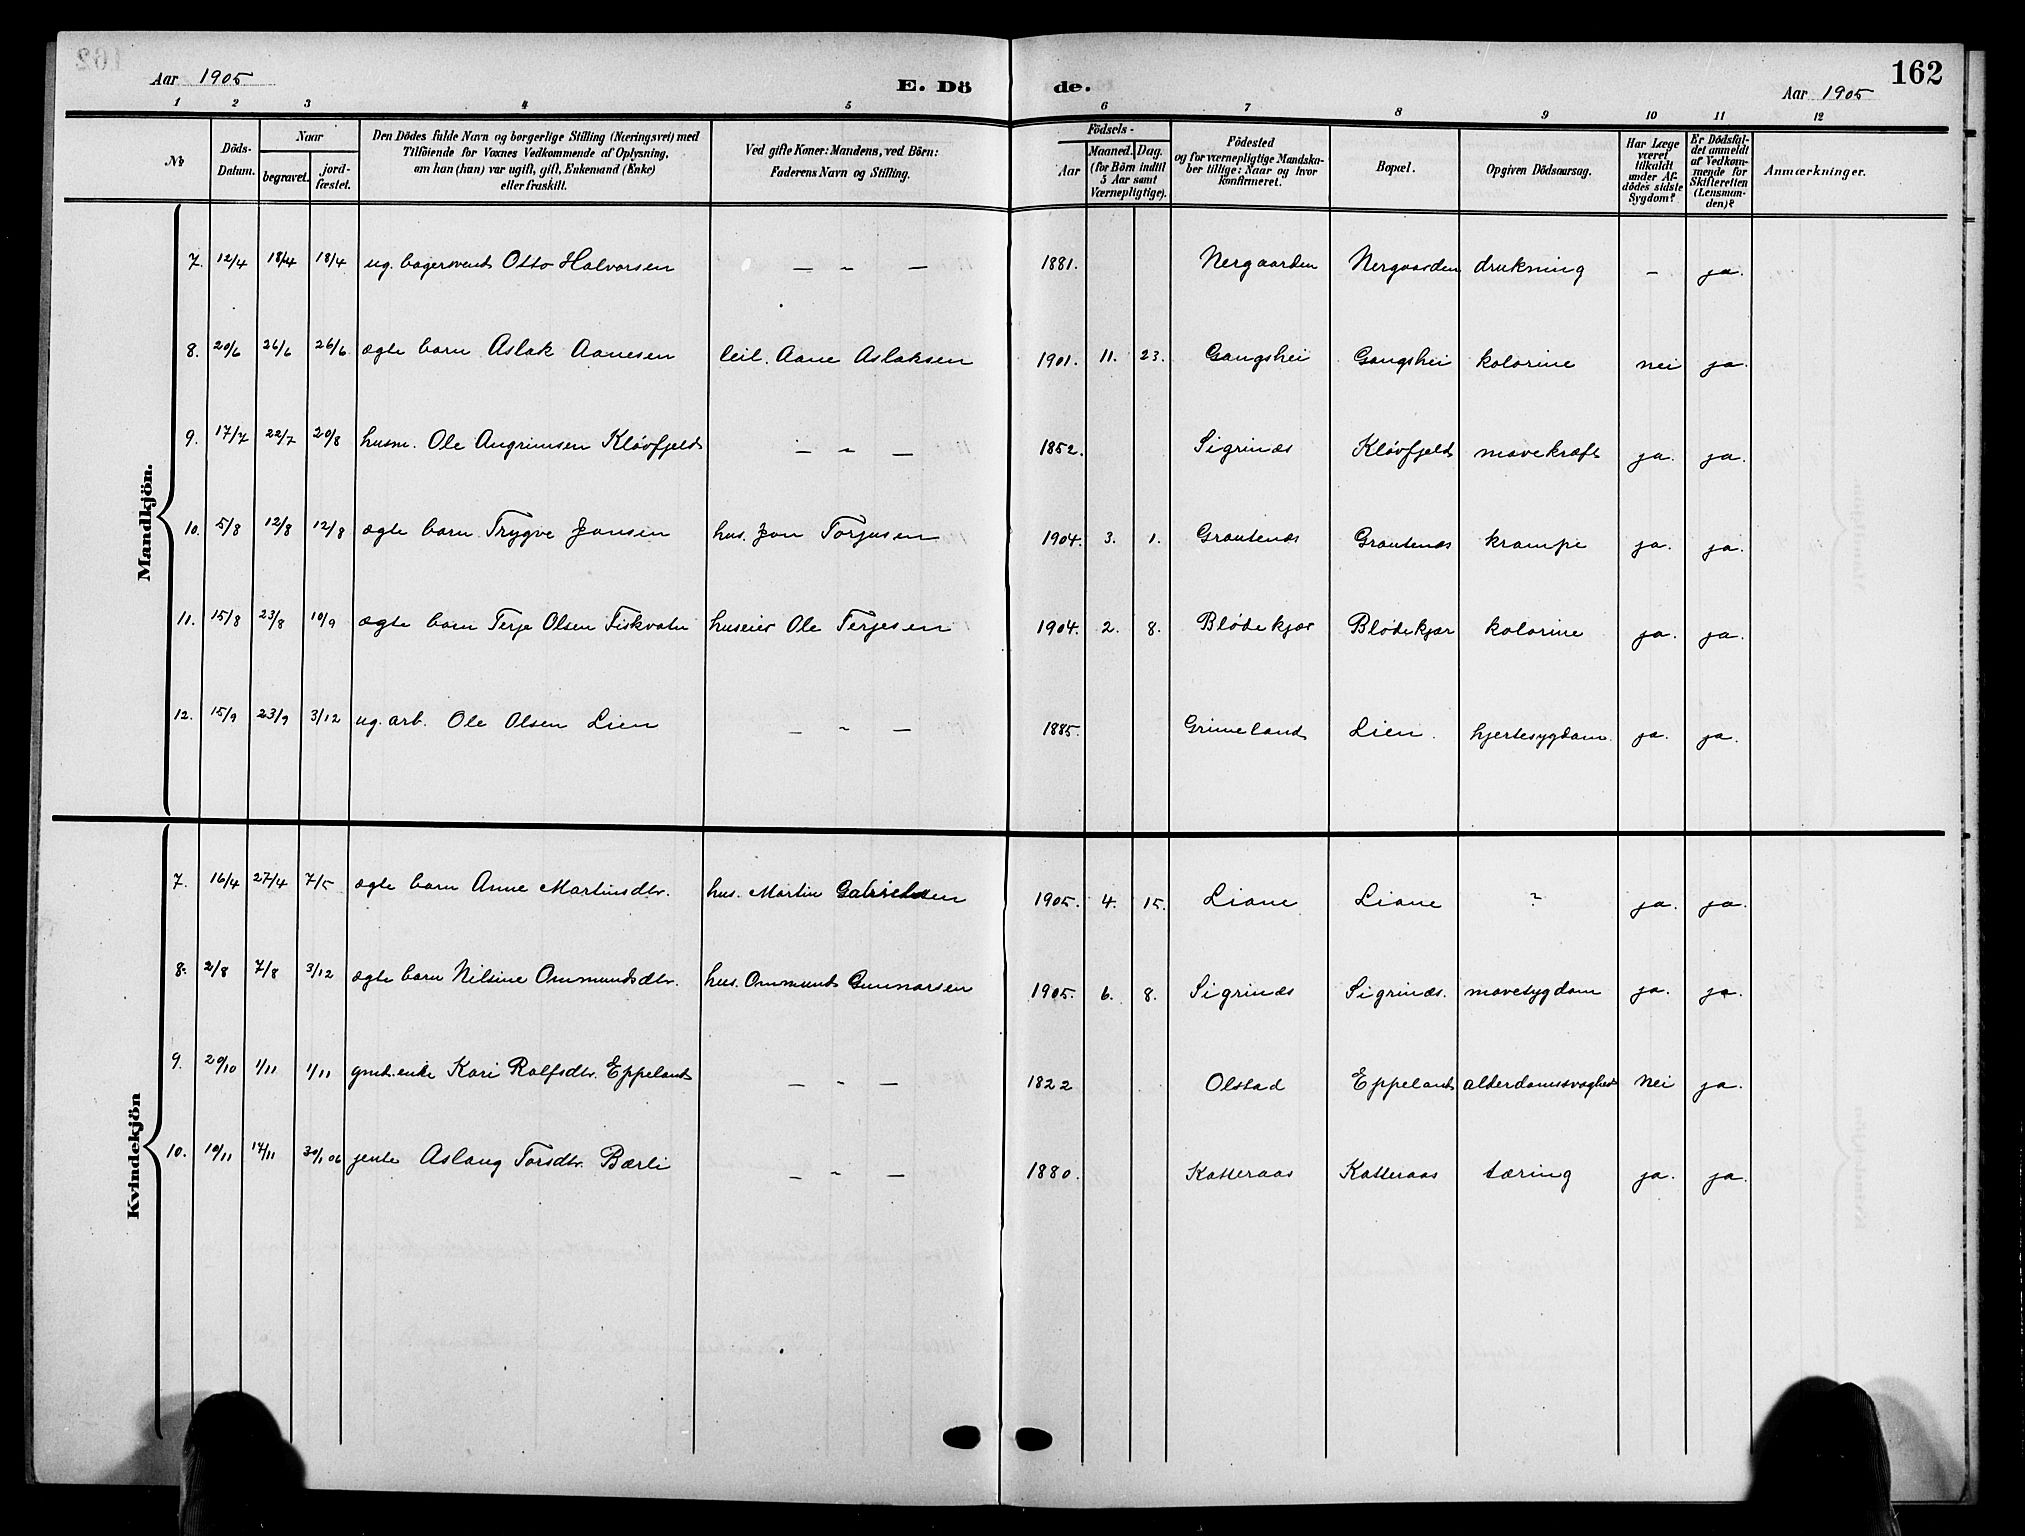 162
Aar 1905
E. Dö de.
Aar 1905
1 2 3 4 5 6 7 8 9 10 11 12
No
Döds-Datum.
Naar
begravet.
jord-fæstet.
Den Dödes fulde Navn og borgerlige Stilling (Næringsvei) med
Tilföiende for Voxnes Vedkommende af Oplysning,
om han (hun) var ugift, gift, Enkemand (Enke)
eller fraskilt.
Ved gifte Koner: Mandens, ved Börn:
Faderens Navn og Stilling.
Födsels-
Aar
Maaned. Dag.
(for Börn indtil
5 Aar samt
Værnepligtige).
Födested
og for værnepligtige Mandska-
ber tillige: Naar og hvor
konfirmeret.
Bopæl.
Opgiven Dödsaarsag.
Har Læge
været
tilkaldt
under Af-
dödes sidste
Sygdom?
Er Dödsfal-
det anmeldt
af Vedkom-
mende for
Skifteretten
(Lensman-
den)?
Anmærkninger.
Mandkjön.
7. 12/4 18/4 18/4 ug. bagersvend Otto Halvorsen — „ — 1881. Nergaarden Nergaarden drukning – ja.
8. 20/6 26/6 26/6. ægte barn Aslak Aanesen leil. Aane Aslaksen 1901. 11. 23. Gangshei Gangshei kolorine nei ja.
9. 17/7 22/7 20/8 husm. Ole Angrimsen Kløvfjeld — „ — 1852. Sigrinæs Kløvfjeld mavekræft ja. ja.
10. 5/8 12/8 12/8 ægte barn Trygve Jonsen hus. Jon Torjusen 1904. 3. 1. Grautenæs Grautenæs krampe ja. ja.
11. 15/8 23/8 10/9 ægte barn Terje Olsen Fiskvatn huseier Ole Terjesen 1904. 2. 8. Blødekjær Blødekjær kolorine ja. ja.
12. 15/9 23/9 3/12 ug. arb. Ole Olsen Lien — „ — 1885. Grimeland Lien. hjertesygdom. ja. ja.
Kvindekjön
7. 16/4 27/4 7/5 ægte barn Anne Martinsdtr. hus. Martin Gabrielsen 1905. 4. 15. Liane Liane ? ja. ja.
8. 2/8 7/8 3/12 ægte barn Nilsine Ommundsdtr. hus. Ommund Gunnarsen 1905. 6. 8. Sigrinæs Sigrinæs. mavesygdom ja. ja.
9. 20/10 1/11 1/11 gmd. enke Kari Rolfsdtr. Eppeland — „ — 1822 Olstad Eppeland alderdomssvaghed nei ja.
10. 10/11 14/11 30/1 06 jente Aslaug Torsdtr. Bærli — „ — 1880. Katteraas Katteraas tæring ja. ja.